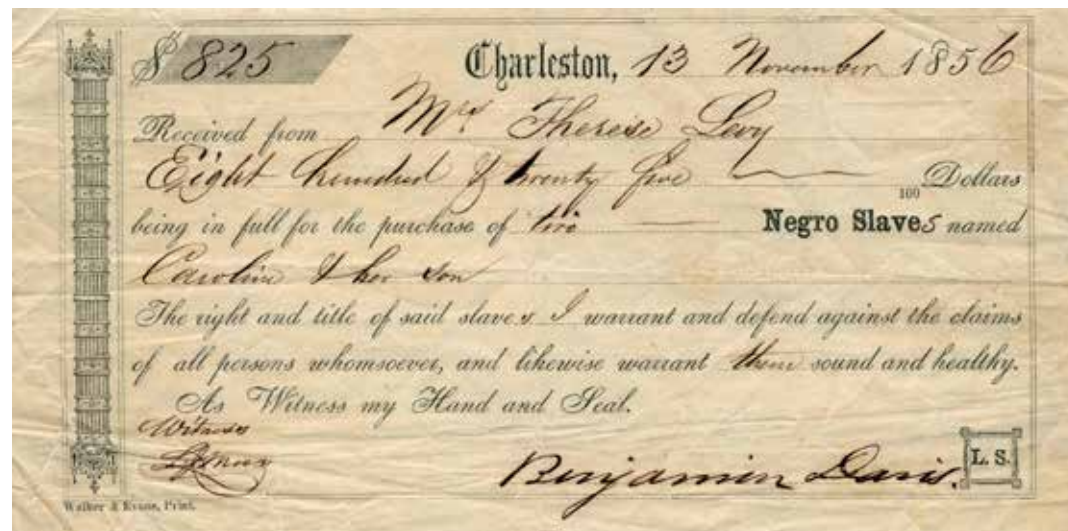 $ 825 Charleston, 13 November 1856
Received from Mrs Therese Levy
Eight hundred & twenty five 100 Dollars
being in full for the purchase of two Negro Slaves named
Caroline & her son
The right and title of said slaves I warrant and defend against the claims
of all persons whomsoever, and likewise warrant them sound and healthy.
As Witness my Hand and Seal.
Witness
Benjamin Davis. L. S.
Walker & Evans, Print.